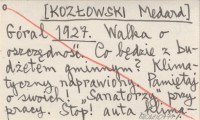 [KOZŁOWSKI Medard]
Góral 1927. Walka o
oszczędność. Co będzie z bu-
dżetem gminnym? Klima-
tycznej naprawiony. Pamiętaj
o swoich! "Sanatorzy" przy
pracy. Stop! auta klima-